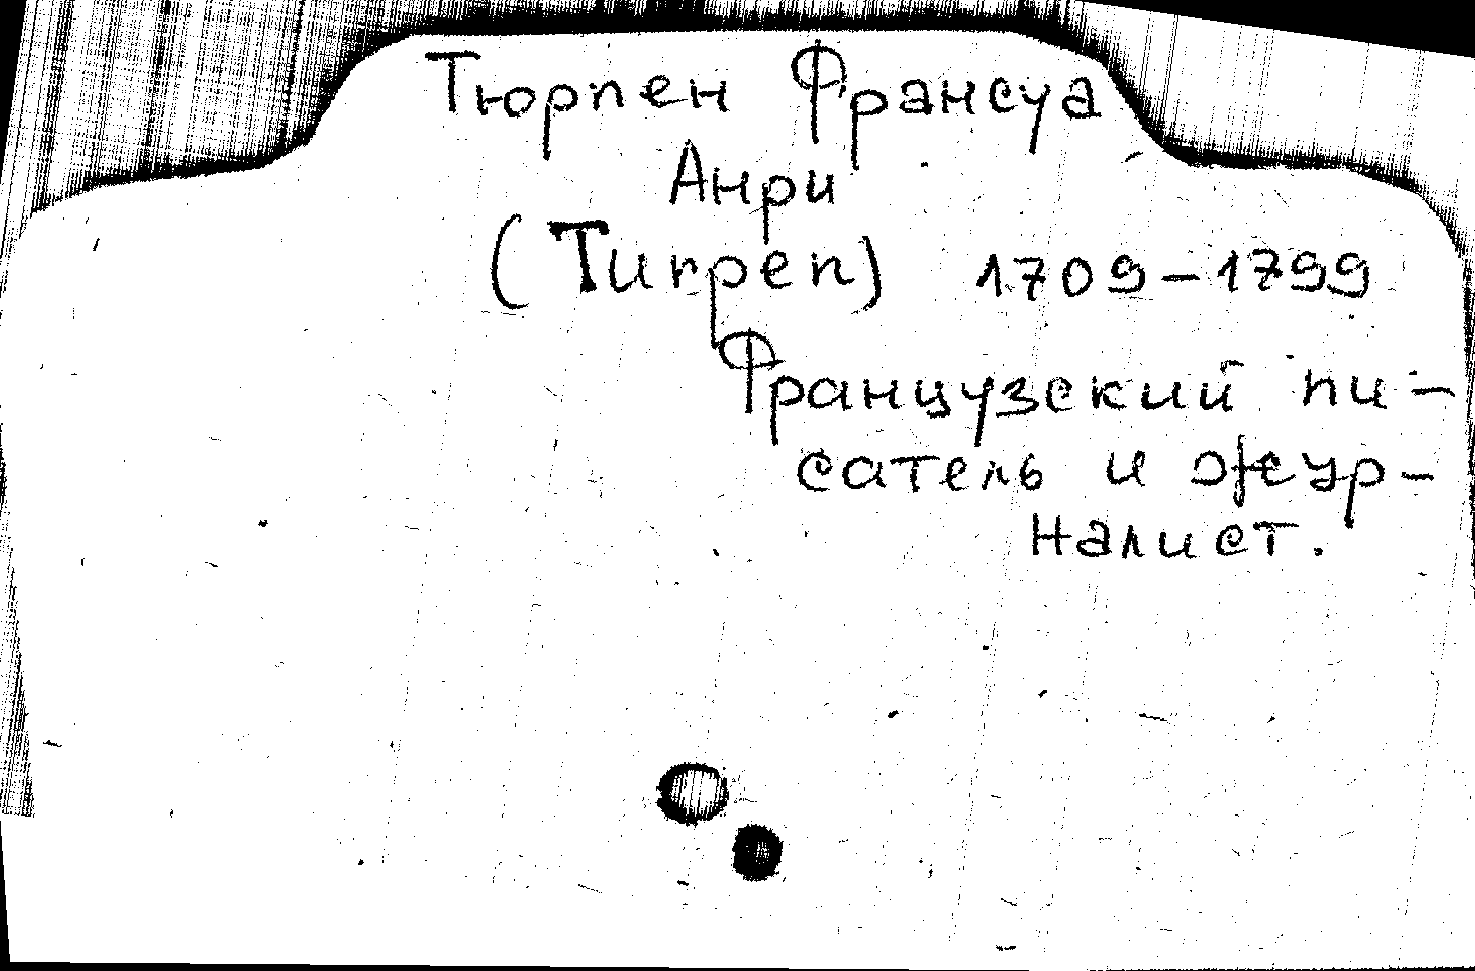 Тюрпен Франсуа
Анри
(Turpen) 1709-1799
Французский пи-
сатель и жур-
налист.